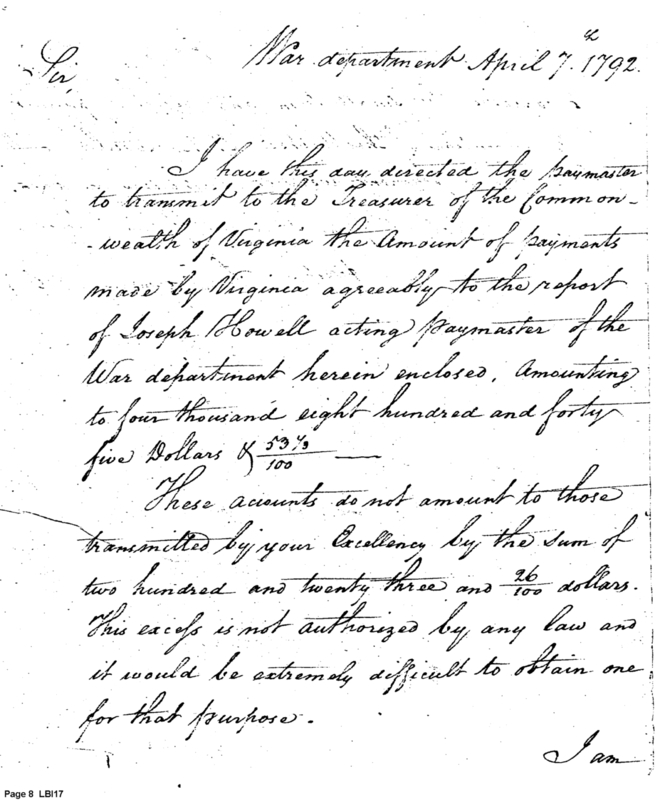 War department April 7th 1792.
Sir,
I have this day directed the paymaster
to transmit to the Treasurer of the Common-
-wealth of Virginia the Amount of payments
made by Virginia agreeably to the report
of Joseph Howell acting paymaster of the
War department herein enclosed, Amounting
to four thousand eight hundred and forty
five Dollars & 53 1/3/100 —
These accounts do not amount to those
transmitted by your Excellency by the sum of
two hundred and twenty three and 26/100 dollars.
This excess is not authorized by any law and
it would be extremely difficult to obtain one
for that purpose.
I am
Page 8 LBI17